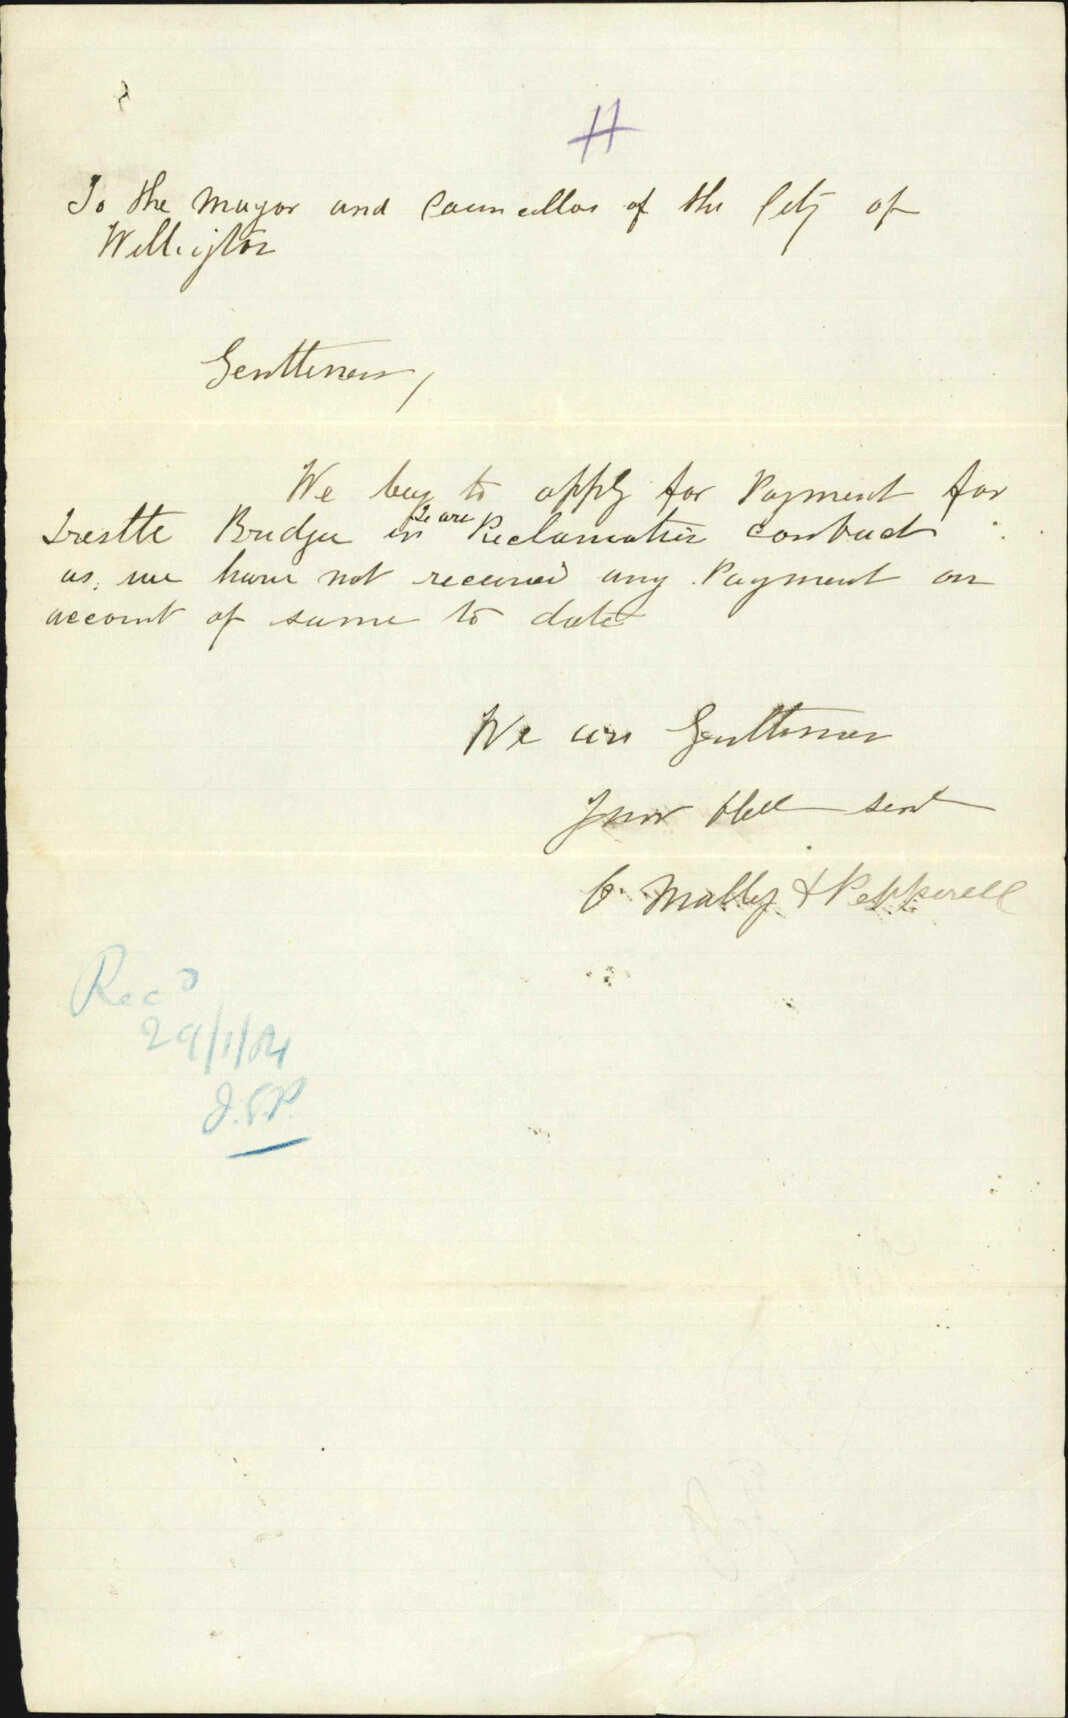 H
To the Mayor and Councillors of the City of
Wellington
Gentlemen,
We beg to apply for Payment for
Te aro
Trestle Bridge in Reclamation contract
as we have not received any Payment on
account of same to date
We are Gentlemen
Your Obt sert
O Mally & Pepperell
Recd
29/1/04
J.E.P.